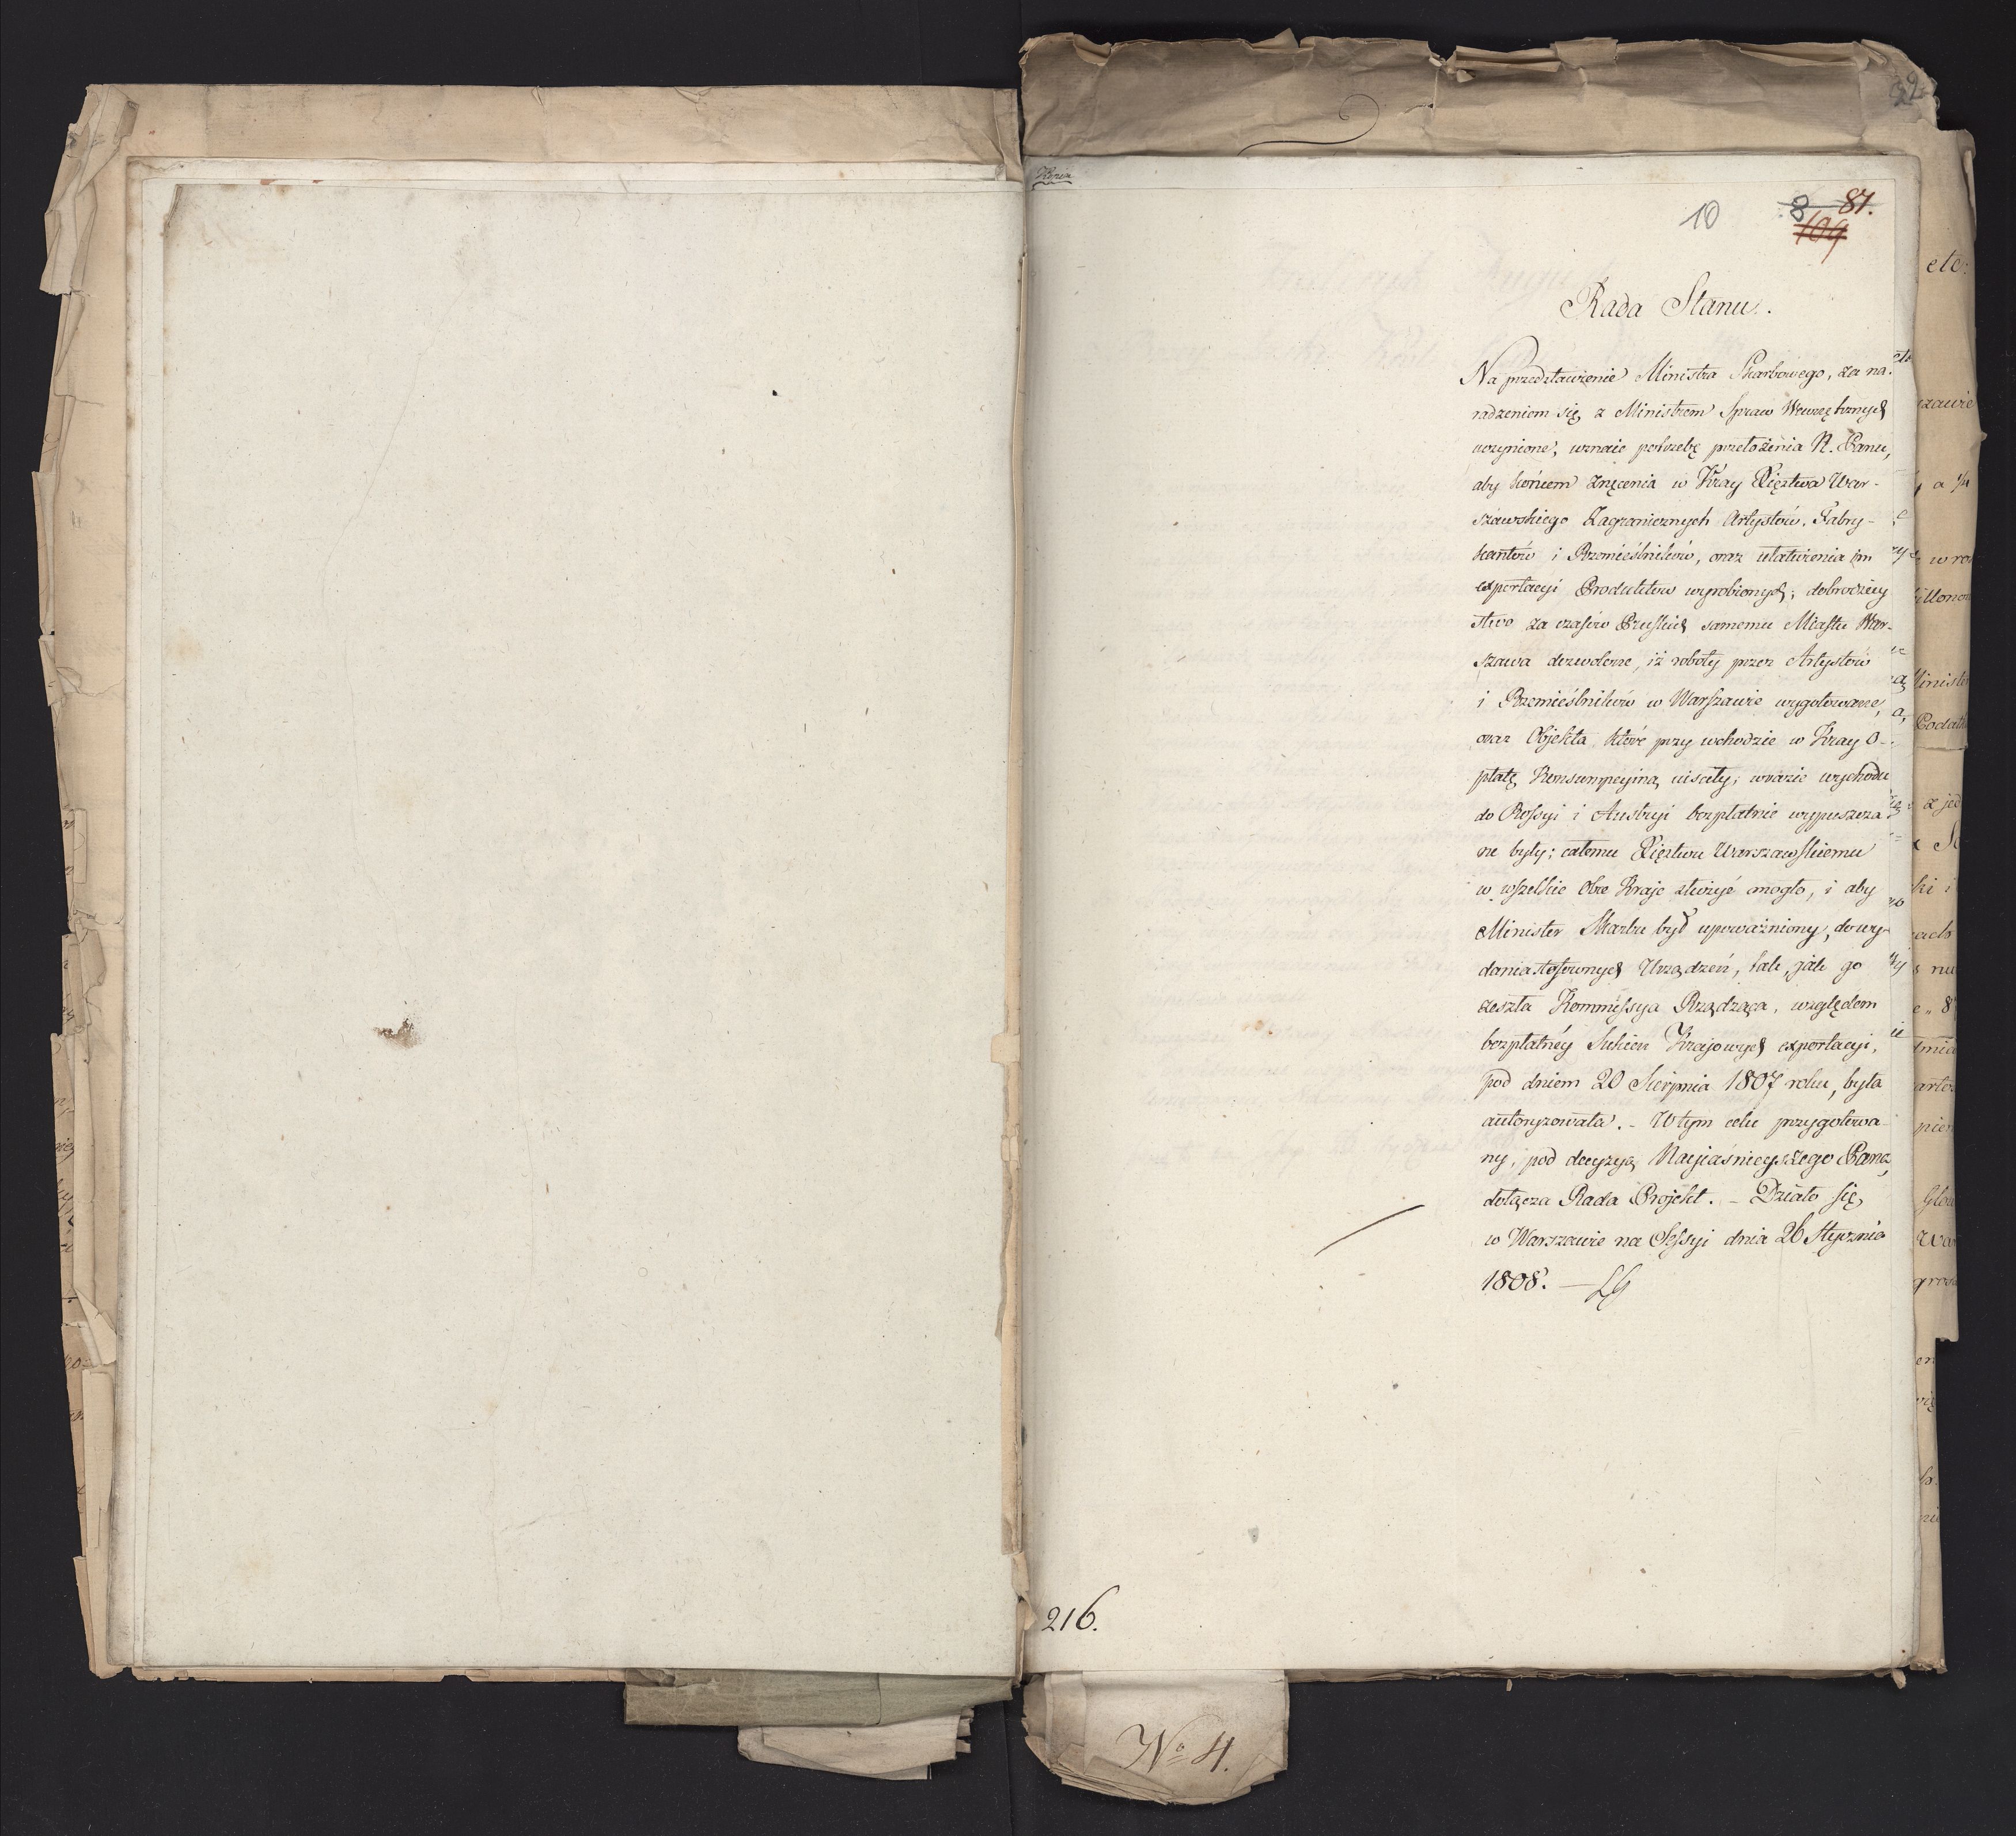 Kopia
10
8 87.
109
Rada Stanu.
Na przedstawienie Ministra Skarbowego, za na-
radzeniem się z Ministrem Spraw Wewnętrznych
uczynione, uznaie potrzebę przełożenia N. Panu,
aby końcem znęcenia w Kray Xięztwa War-
szawskiego Zagranicznych Artystów, Fabry-
kantów i Rzemieślników, oraz ułatwienia im
exportacyi Produktów wyrobionych; dobrodziey
stwo za czasów Pruskich samemu Miastu War-
szawa dozwolone, iż roboty przez Artystów
i Rzemieślników w Warszawie wygotowane,
oraz Objekta które przy wchodzie w Kray O-
płatę Konsumpcyiną uiściły; w razie wychodu
do Rossyi i Austryi bezpłatnie wypuszcza
ne były; całemu Xięztwu Warszawskiemu
w wszelkie Obce Kraje służyć mogło, i aby
Minister Skarbu był upoważniony, do wy-
dania stosownych Urządzeń, tak, jak go
zeszła Kommissya Rządząca, względem
bezpłatnéy Sukien Krajowych exportacyi,
pod dniem 20 Sierpnia 1807 roku, była
autoryzowała. - W tym celu przygotowa-
ny, pod decyzyą Nayiaśnieyszego Pana,
dołącza Rada Projekt. - Działo się
w Warszawie na Sessyi dnia 26 Stycznia
1808. —
216.
No 4.